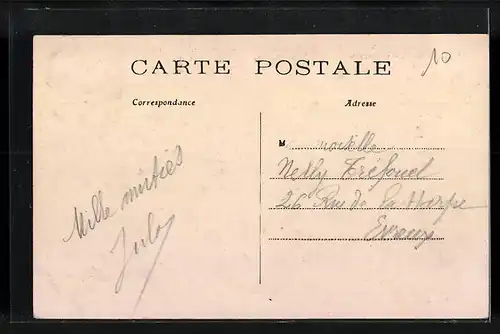 10
CARTE POSTALE
Correspondance
Adresse
Mademoiselle
Nelly Tréfouel
26 Rue de la Harpe
Evreux
Mille